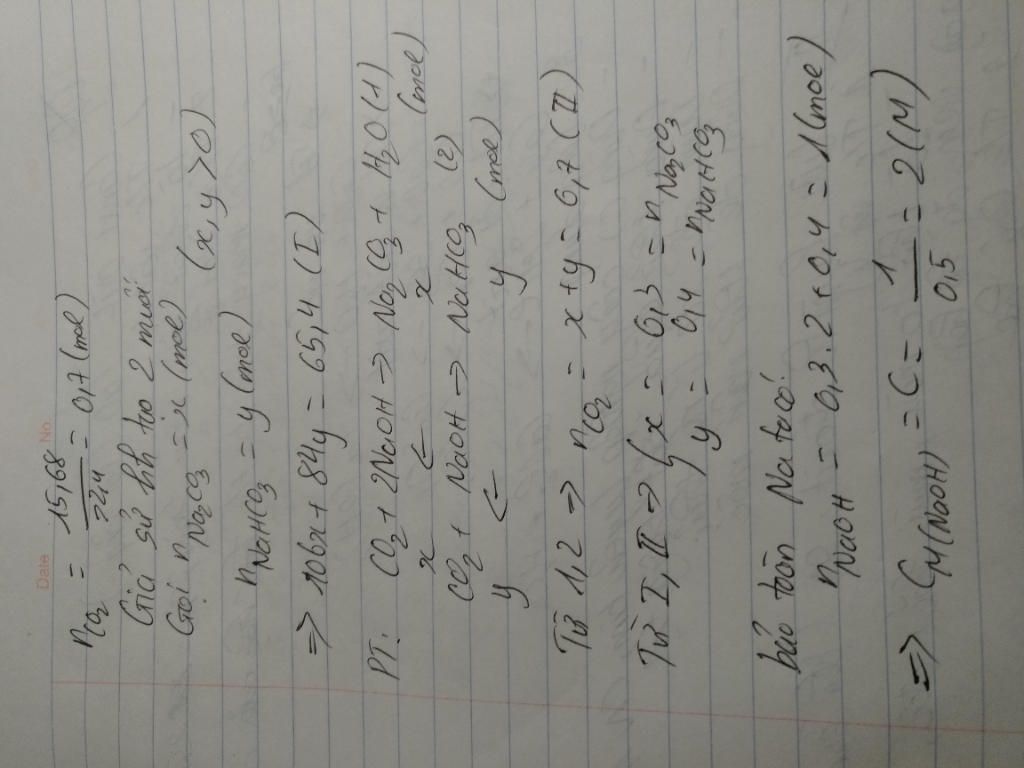 Date No.
nCO2 = 15,68/22,4 = 0,7 (mol)
Giả sử hh tạo 2 muối
Gọi nNa2CO3 = x (mol) (x, y > 0)
nNaHCO3 = y (mol)
=> 106x + 84y = 65,4 (I)
PT: CO2 + 2NaOH → Na2CO3 + H2O (1)
x ← x (mol)
CO2 + NaOH → NaHCO3 (2)
y ← y (mol)
Từ 1,2 => nCO2 = x + y = 0,7 (II)
Từ I, II => { x = 0,3 = nNa2CO3
y = 0,4 = nNaHCO3
bảo toàn Na ta có:
nNaOH = 0,3.2 + 0,4 = 1 (mol)
=> CM(NaOH) = C = 1/0,5 = 2 (M)